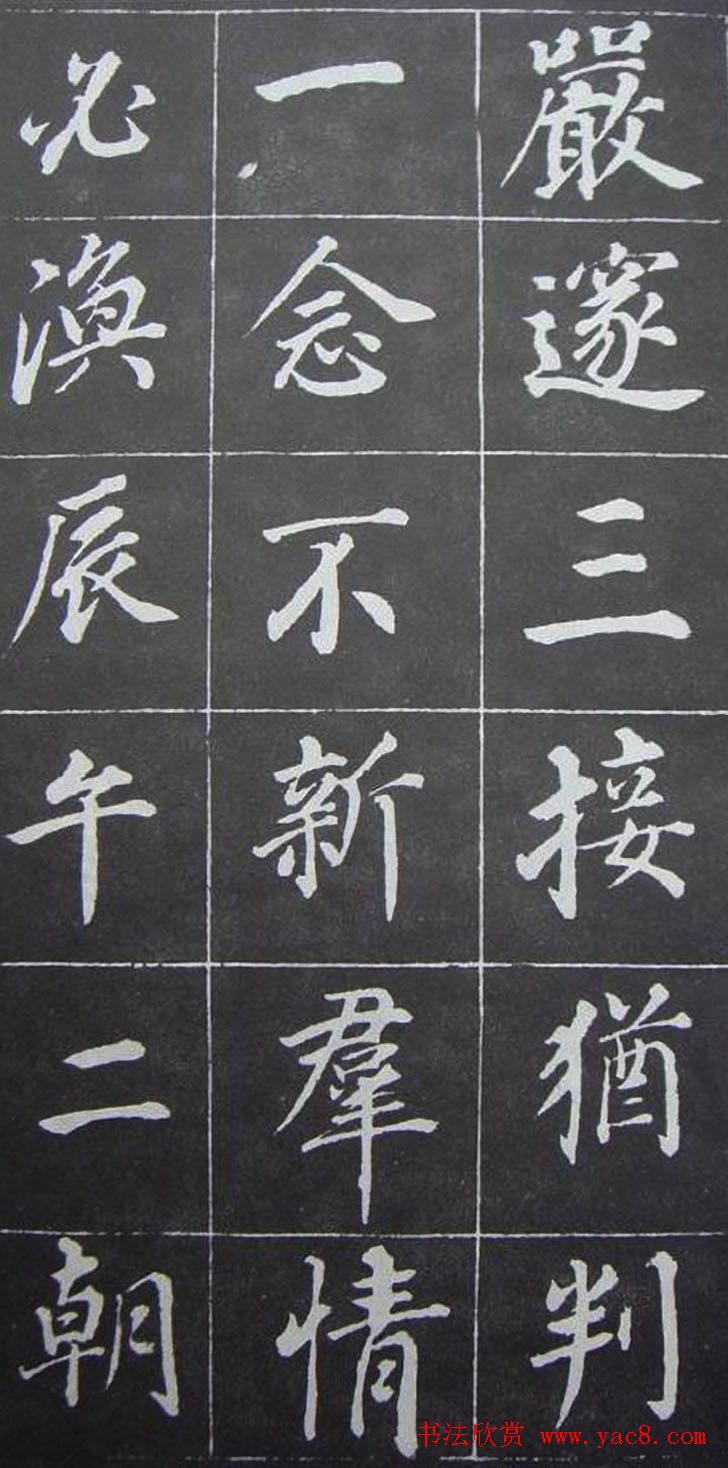 嚴邃三接猶判
一念不新羣情
必渙辰午二朝
书法欣赏 www.yac8.com